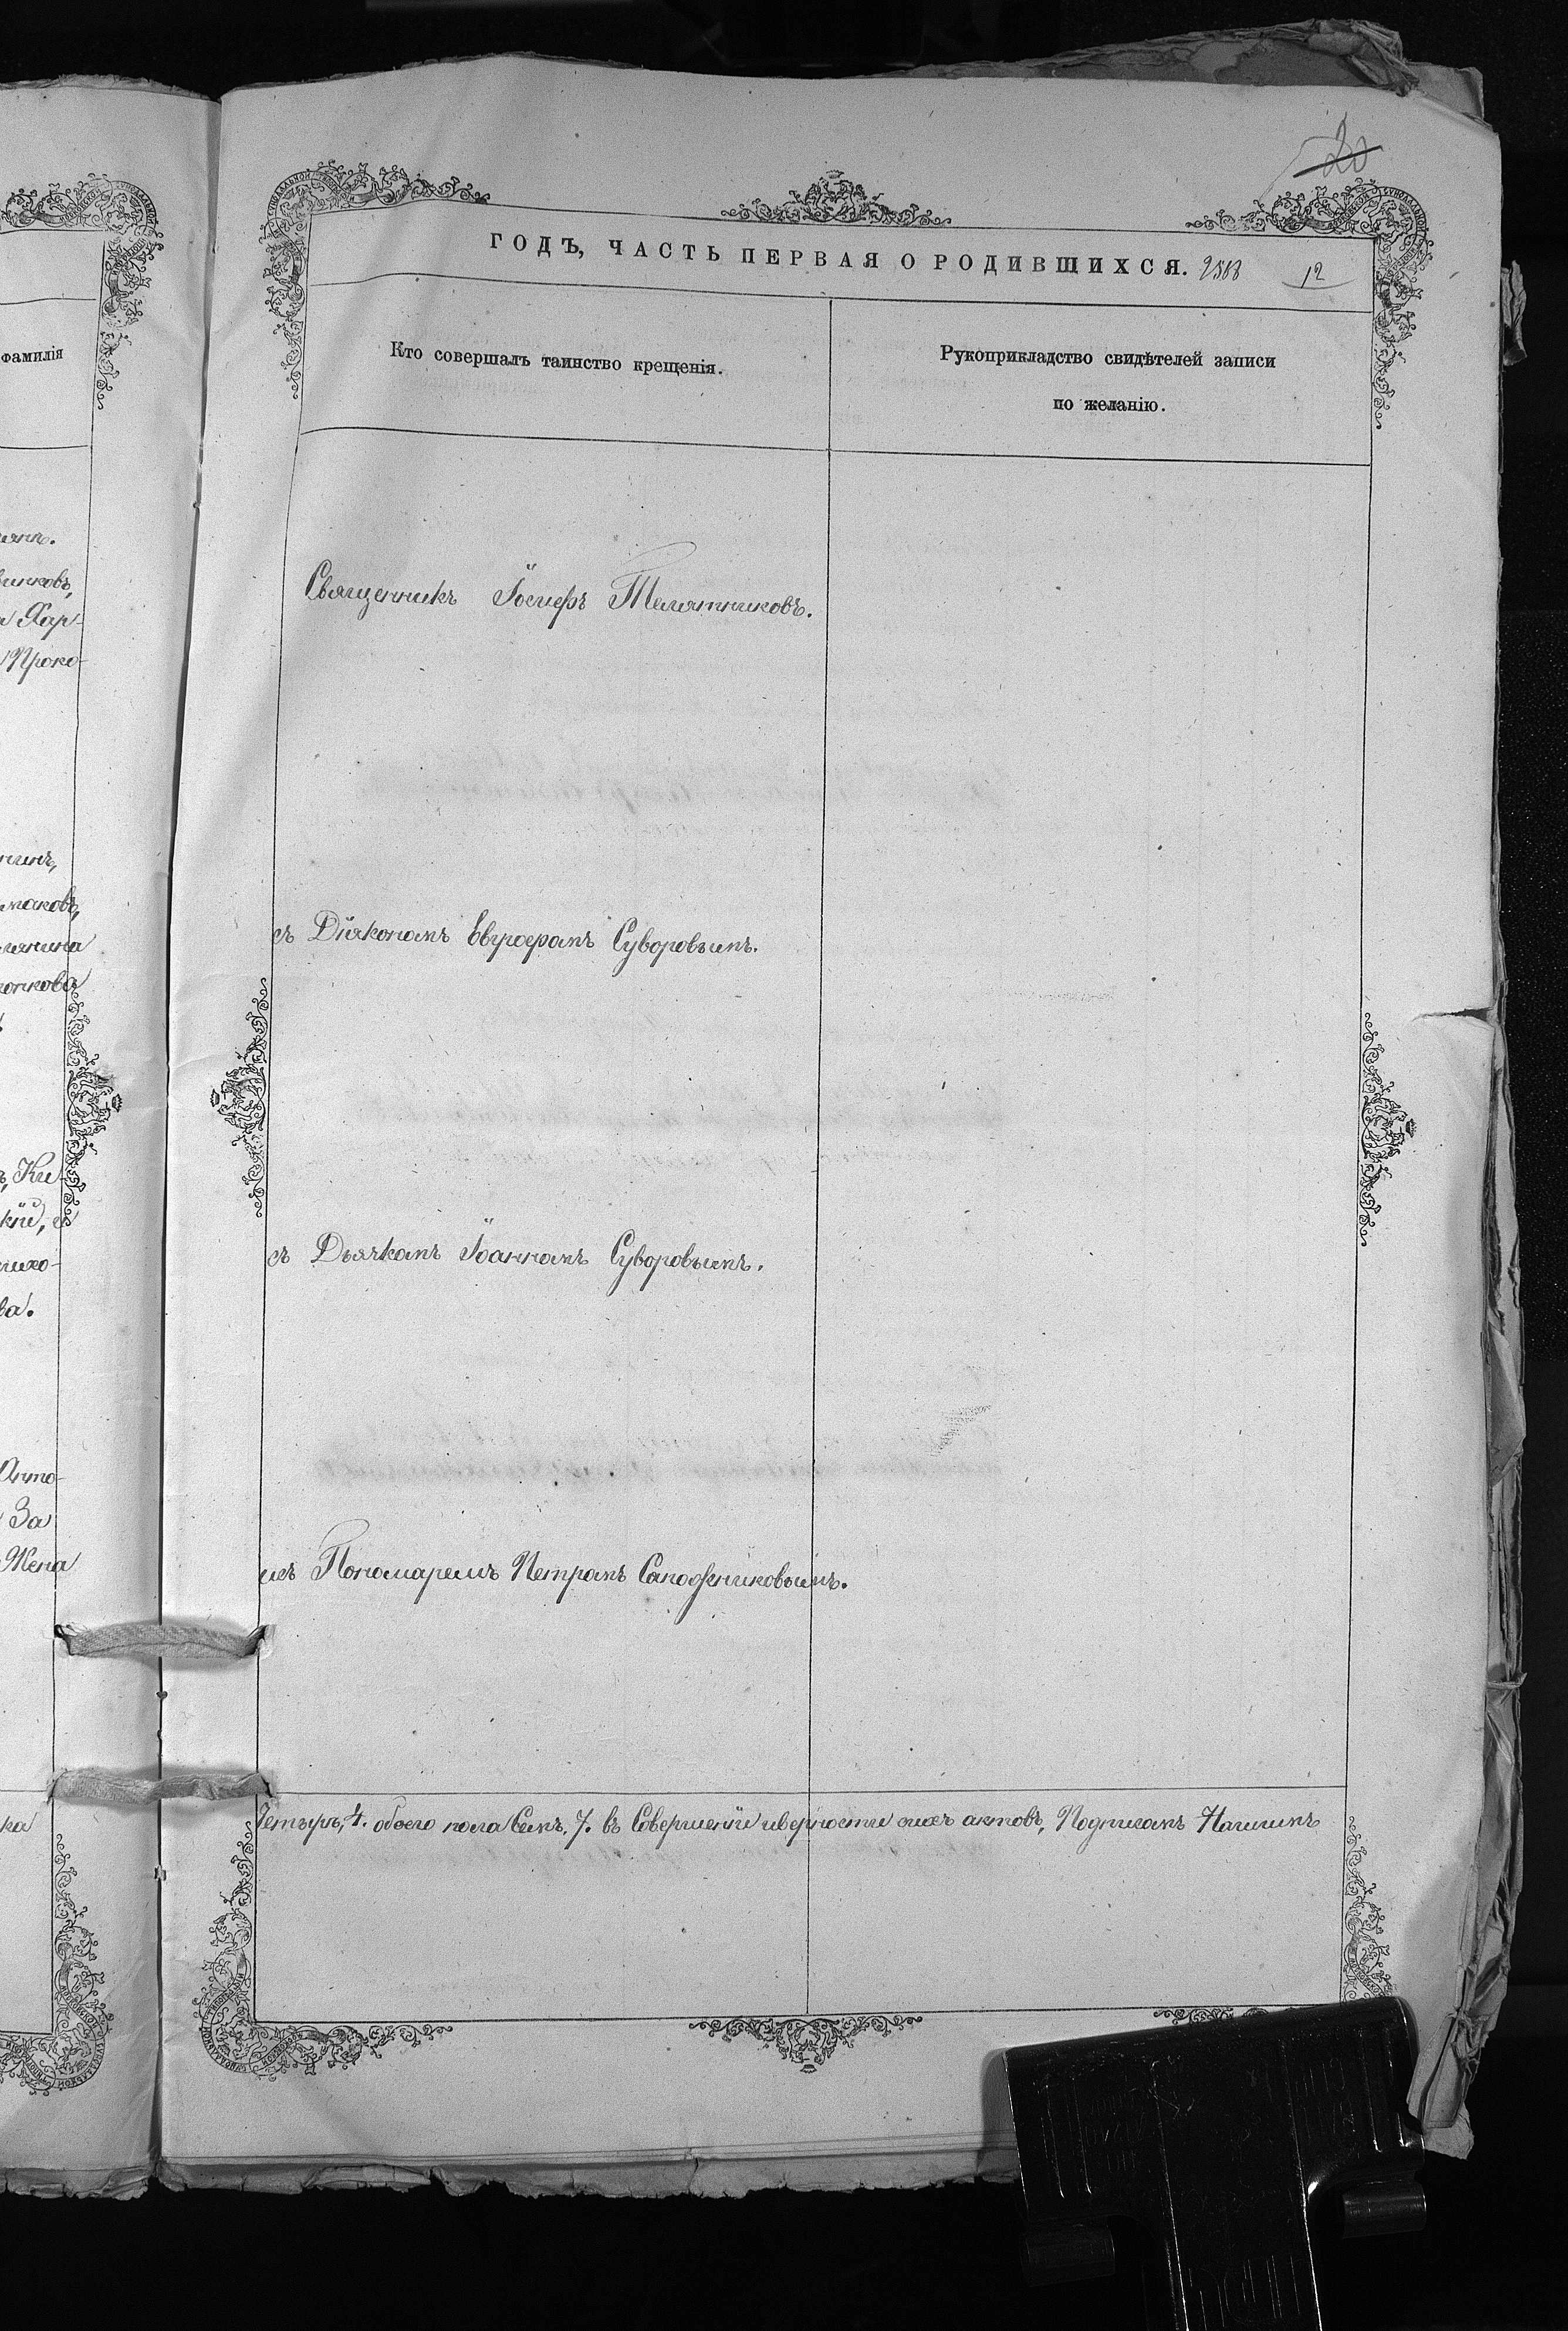 20
ГОДЪ, ЧАСТЬ ПЕРВАЯ О РОДИВШИХСЯ. 12
фамилія
Кто совершалъ таинство крещенія.
Рукоприкладство свидѣтелей записи
по желанію.
Хар-
Проко-
Священникъ Іосифъ Телятниковъ.
съ Діякономъ Евграфомъ Суворовымъ.
Ки-
съ Дьячкомъ Іоанномъ Суворовымъ.
ва.
Анто-
За
Жена
Пономаремъ Петромъ Сапожниковымъ.
ка
Четыре, 4. обоего пола Семь, 7. въ Совершеніи и верности сихъ актовъ, Подписомъ Нашимъ